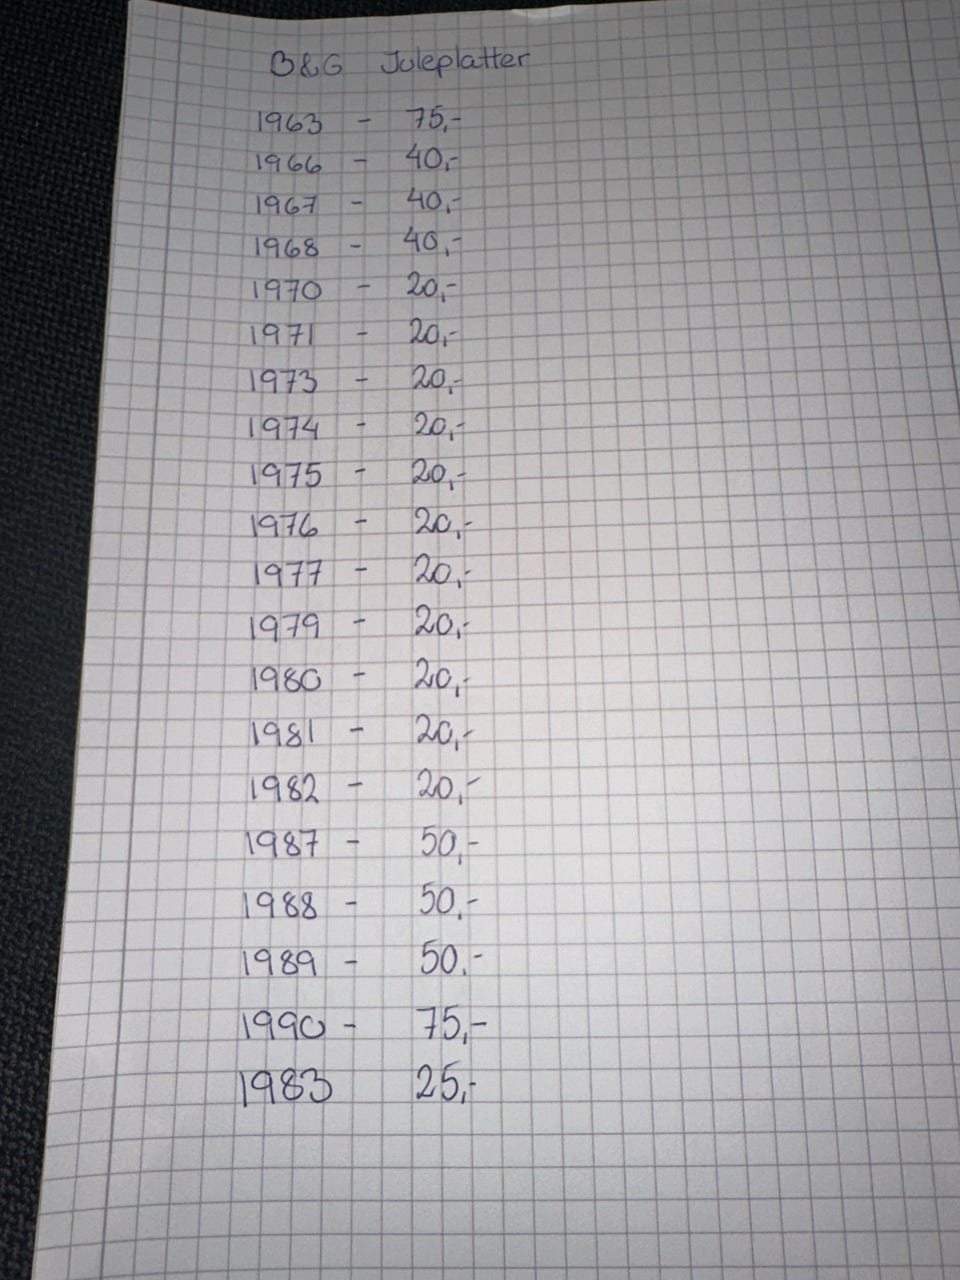 B&G Juleplatter
1963 - 75,-
1966 - 40,-
1967 - 40,-
1968 - 40,-
1970 - 20,-
1971 - 20,-
1973 - 20,-
1974 - 20,-
1975 - 20,-
1976 - 20,-
1977 - 20,-
1979 - 20,-
1980 - 20,-
1981 - 20,-
1982 - 20,-
1987 - 50,-
1988 - 50,-
1989 - 50,-
1990 - 75,-
1983 25,-